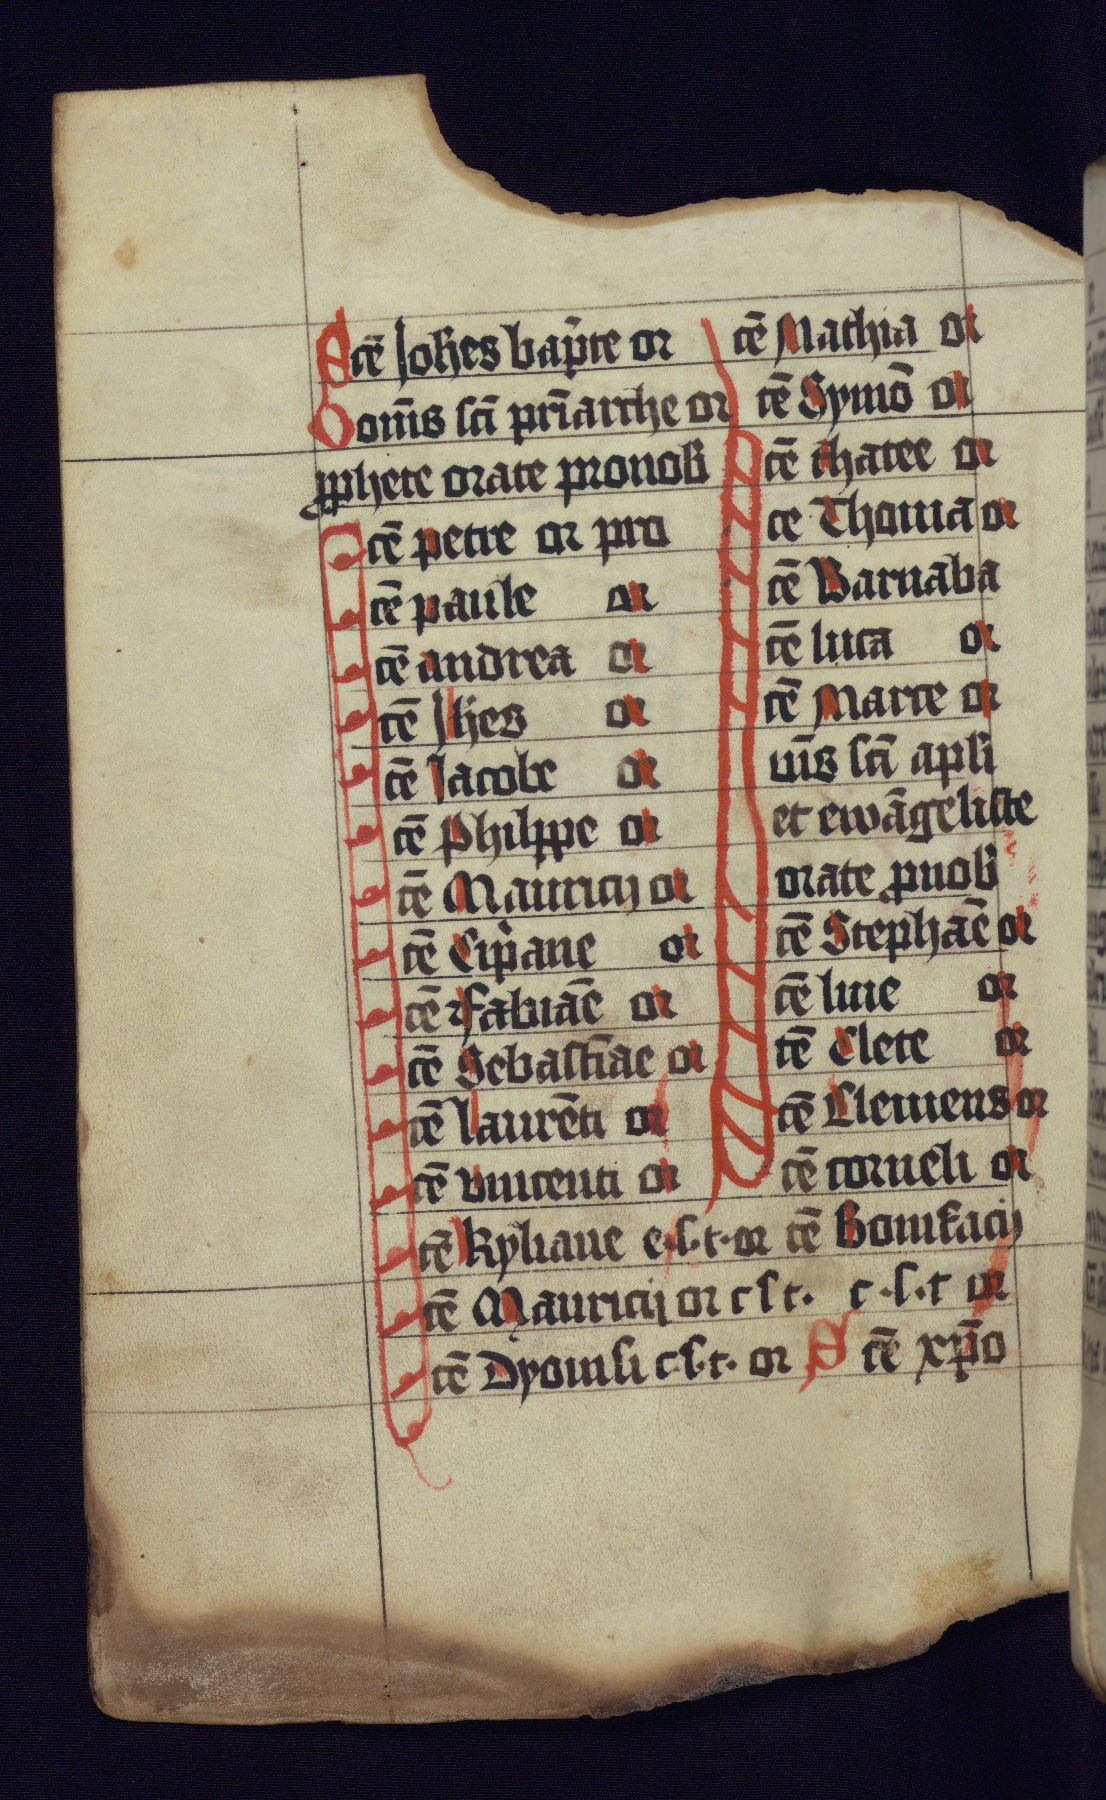 Scē Joħes bap̄te or
Oom̄s scī pr̄iarche or
ꝓphete orate pro nob̄
Scē petre or pro
cē paule or
cē andrea or
cē Jħes or
cē Jacobe or
cē Philippe or
cē Mauricij or
cē Cip̄ane or
cē Fabiāe or
cē Sebastīae or
cē laurēti or
cē vincenti or
cē Kyliane c.s.t. or
cē Mauricij or c s t.
cē Dyonisi c.s.t. or
cē Mathia or
cē Symō or
cē thatee or
ce Thoma or
cē Barnaba
cē luca or
cē Marce or
om̄s scī apłi
et ewāgeliste
orate ꝓ nob̄
cē Stephāe or
cē line or
cē Clete or
cē Clemens or
cē corneli or
cē Bonifacij
c.s.t or
Scē xp̄o